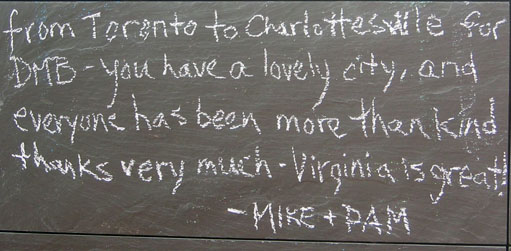 from Toronto to Charlottesville for
DMB - you have a lovely city, and
everyone has been more than kind
thanks very much - Virginia is great!
- MIKE + PAM